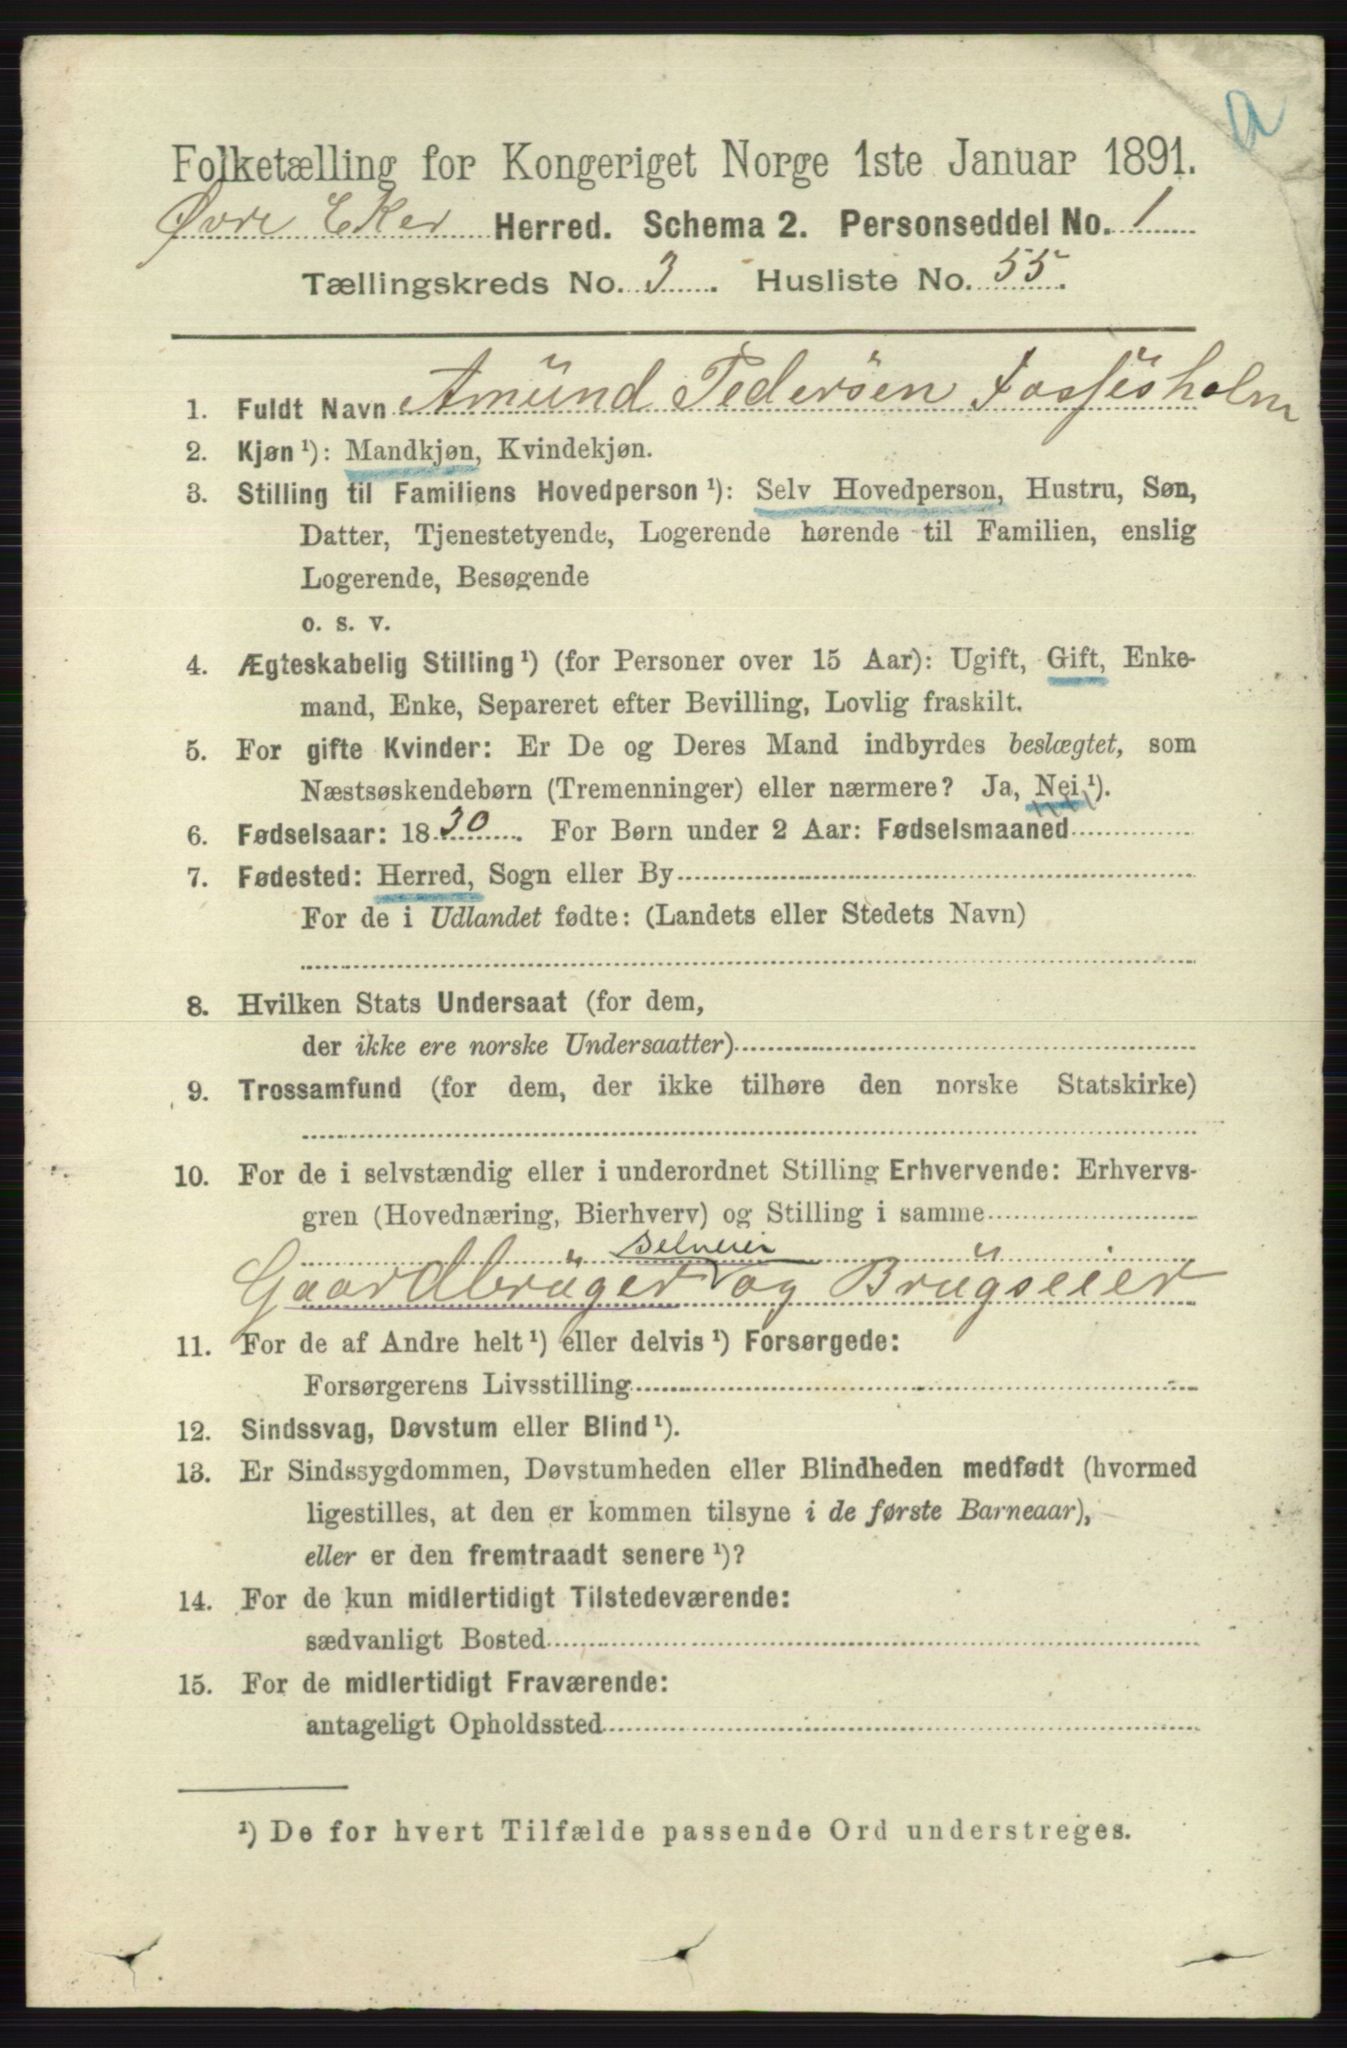 a
Folketælling for Kongeriget Norge 1ste Januar 1891.
Øvre Eker Herred. Schema 2. Personseddel No. 1
Tællingskreds No. 3. Husliste No. 55.
1. Fuldt Navn Amund Pedersen Fossesholm
2. Kjøn ¹): Mandkjøn, Kvindekjøn.
3. Stilling til Familiens Hovedperson ¹): Selv Hovedperson, Hustru, Søn,
Datter, Tjenestetyende, Logerende hørende til Familien, enslig
Logerende, Besøgende
o. s. v.
4. Ægteskabelig Stilling ¹) (for Personer over 15 Aar): Ugift, Gift, Enke-
mand, Enke, Separeret efter Bevilling, Lovlig fraskilt.
5. For gifte Kvinder: Er De og Deres Mand indbyrdes beslægtet, som
Næstsøskendebørn (Tremenninger) eller nærmere? Ja, Nei ¹).
6. Fødselsaar: 1830. For Børn under 2 Aar: Fødselsmaaned
7. Fødested: Herred, Sogn eller By
For de i Udlandet fødte: (Landets eller Stedets Navn)
8. Hvilken Stats Undersaat (for dem,
der ikke ere norske Undersaatter)
9. Trossamfund (for dem, der ikke tilhøre den norske Statskirke)
10. For de i selvstændig eller i underordnet Stilling Erhvervende: Erhvervs-
gren (Hovednæring, Bierhverv) og Stilling i samme
selveier
Gaardbruger og Brugseier
11. For de af Andre helt ¹) eller delvis ¹) Forsørgede:
Forsørgerens Livsstilling
12. Sindssvag, Døvstum eller Blind ¹).
13. Er Sindssygdommen, Døvstumheden eller Blindheden medfødt (hvormed
ligestilles, at den er kommen tilsyne i de første Barneaar),
eller er den fremtraadt senere ¹)?
14. For de kun midlertidigt Tilstedeværende:
sædvanligt Bosted
15. For de midlertidigt Fraværende:
antageligt Opholdssted
¹) De for hvert Tilfælde passende Ord understreges.